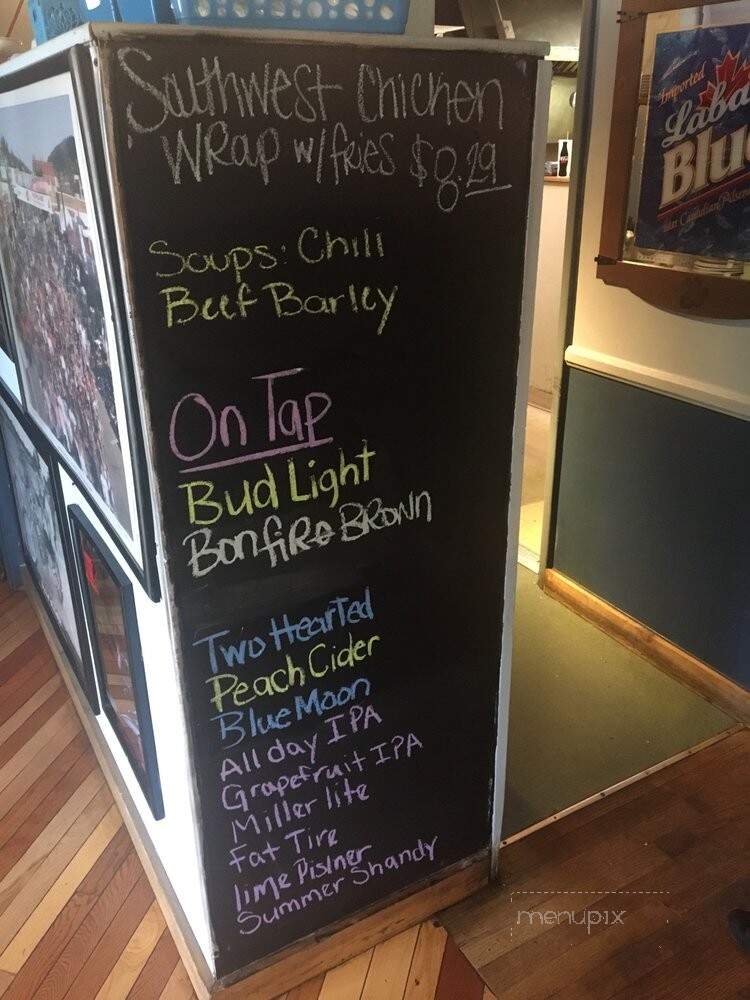 Southwest Chicken
Wrap w/fries $8.29
Soups: Chili
Beef Barley
On Tap
Bud Light
Bonfire Brown
Two Hearted
Peach Cider
Blue Moon
All day IPA
Grapefruit IPA
Miller lite
Fat Tire
lime Pislner
Summer Shandy
Imported
Laba
Blu
Canadian Pilse
menupix